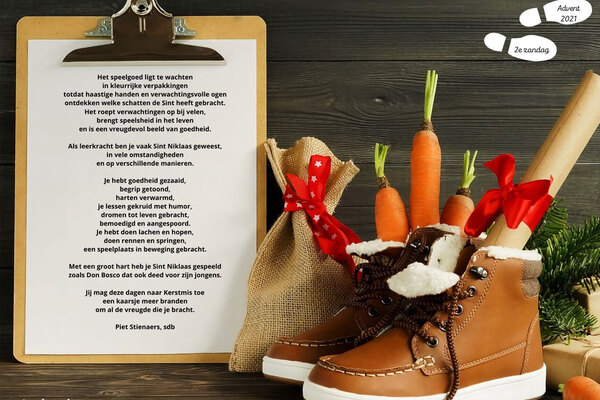 Advent
2021
2e zondag
Het speelgoed ligt te wachten
in kleurrijke verpakkingen
totdat haastige handen en verwachtingsvolle ogen
ontdekken welke schatten de Sint heeft gebracht.
Het roept verwachtingen op bij velen,
brengt speelsheid in het leven
en is een vreugdevol beeld van goedheid.
Als leerkracht ben je vaak Sint Niklaas geweest,
in vele omstandigheden
en op verschillende manieren.
Je hebt goedheid gezaaid,
begrip getoond,
harten verwarmd,
je lessen gekruid met humor,
dromen tot leven gebracht,
bemoedigd en aangespoord.
Je hebt doen lachen en hopen,
doen rennen en springen,
een speelplaats in beweging gebracht.
Met een groot hart heb je Sint Niklaas gespeeld
zoals Don Bosco dat ook deed voor zijn jongens.
Jij mag deze dagen naar Kerstmis toe
een kaarsje meer branden
om al de vreugde die je bracht.
Piet Stienaers, sdb